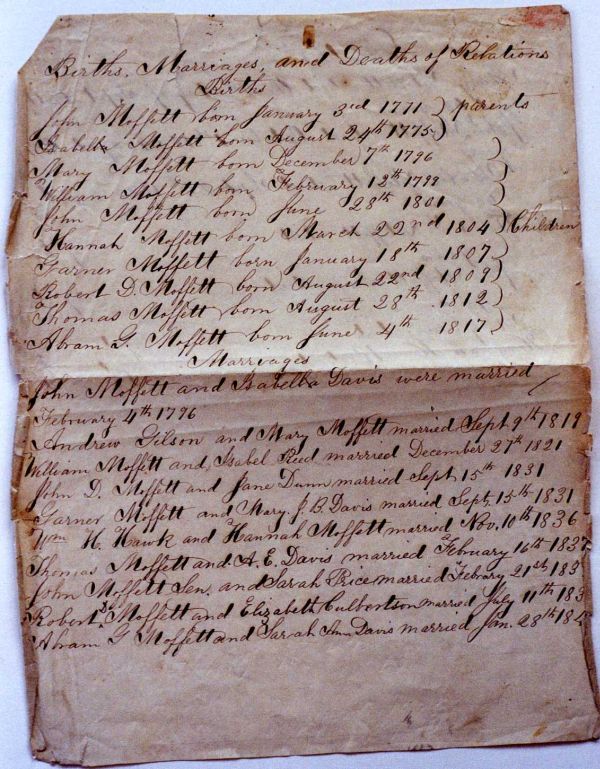 Births, Marriages, and Deaths of Relations
Births
John Moffett born January 3rd 1771 } parents
Isabella Moffett born August 24th 1775 }
Mary Moffett born December 7th 1796 }
William Moffett born February 12th 1799 }
John Moffett born June 28th 1801
Hannah Moffett born March 22nd 1804 } Children
Garner Moffett born January 18th 1807 }
Robert D. Moffett born August 22nd 1809 }
Thomas Moffett born August 28th 1812 }
Abram G. Moffett born June 4th 1817 }
Marriages
John Moffett and Isabella Davis were married
February 4th 1796
Andrew Gilson and Mary Moffett married Sept 9th 1819
William Moffett and Isabel Reed married December 27th 1821
John D. Moffett and Jane Dunn married Sept 15th 1831
Garner Moffett and Mary J. B. Davis married Sept. 15th 1831
Wm H. Hawk and Hannah Moffett married Nov. 10th 1836
Thomas Moffett and A. E. Davis married February 16th 1837
John Moffett Sen. and Sarah Price married Febrary 21st 183
Robert D. Moffett and Elizabeth Culbertson married July 11th 183
Abram G Moffett and Sarah Ann Davis married Jan. 28th 184